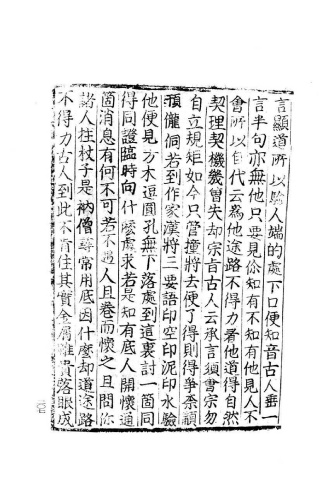 言顯道所以驗人端的處下口便知音古人垂一
言半句亦無他只要見你知有不知有他見人不
會所以自代云爲他途路不得力看他道得自然
契理契機幾曽失却宗旨古人云承言須㑹宗勿
自立規矩如今只當撞將去便了得則得爭柰顢
頇儱侗若到作家漢將三要語印空印泥印水驗
他便見方木逗圓孔無下落處到這裏討一箇同
得同證臨時向什麽處求若是知有底人開懷通
箇消息有何不可若不遇人且卷而懷之且問你
諸人拄杖子是衲僧尋常用底因什麽却道途路
不得力古人到此不肯住其實金屑雖貴落眼成